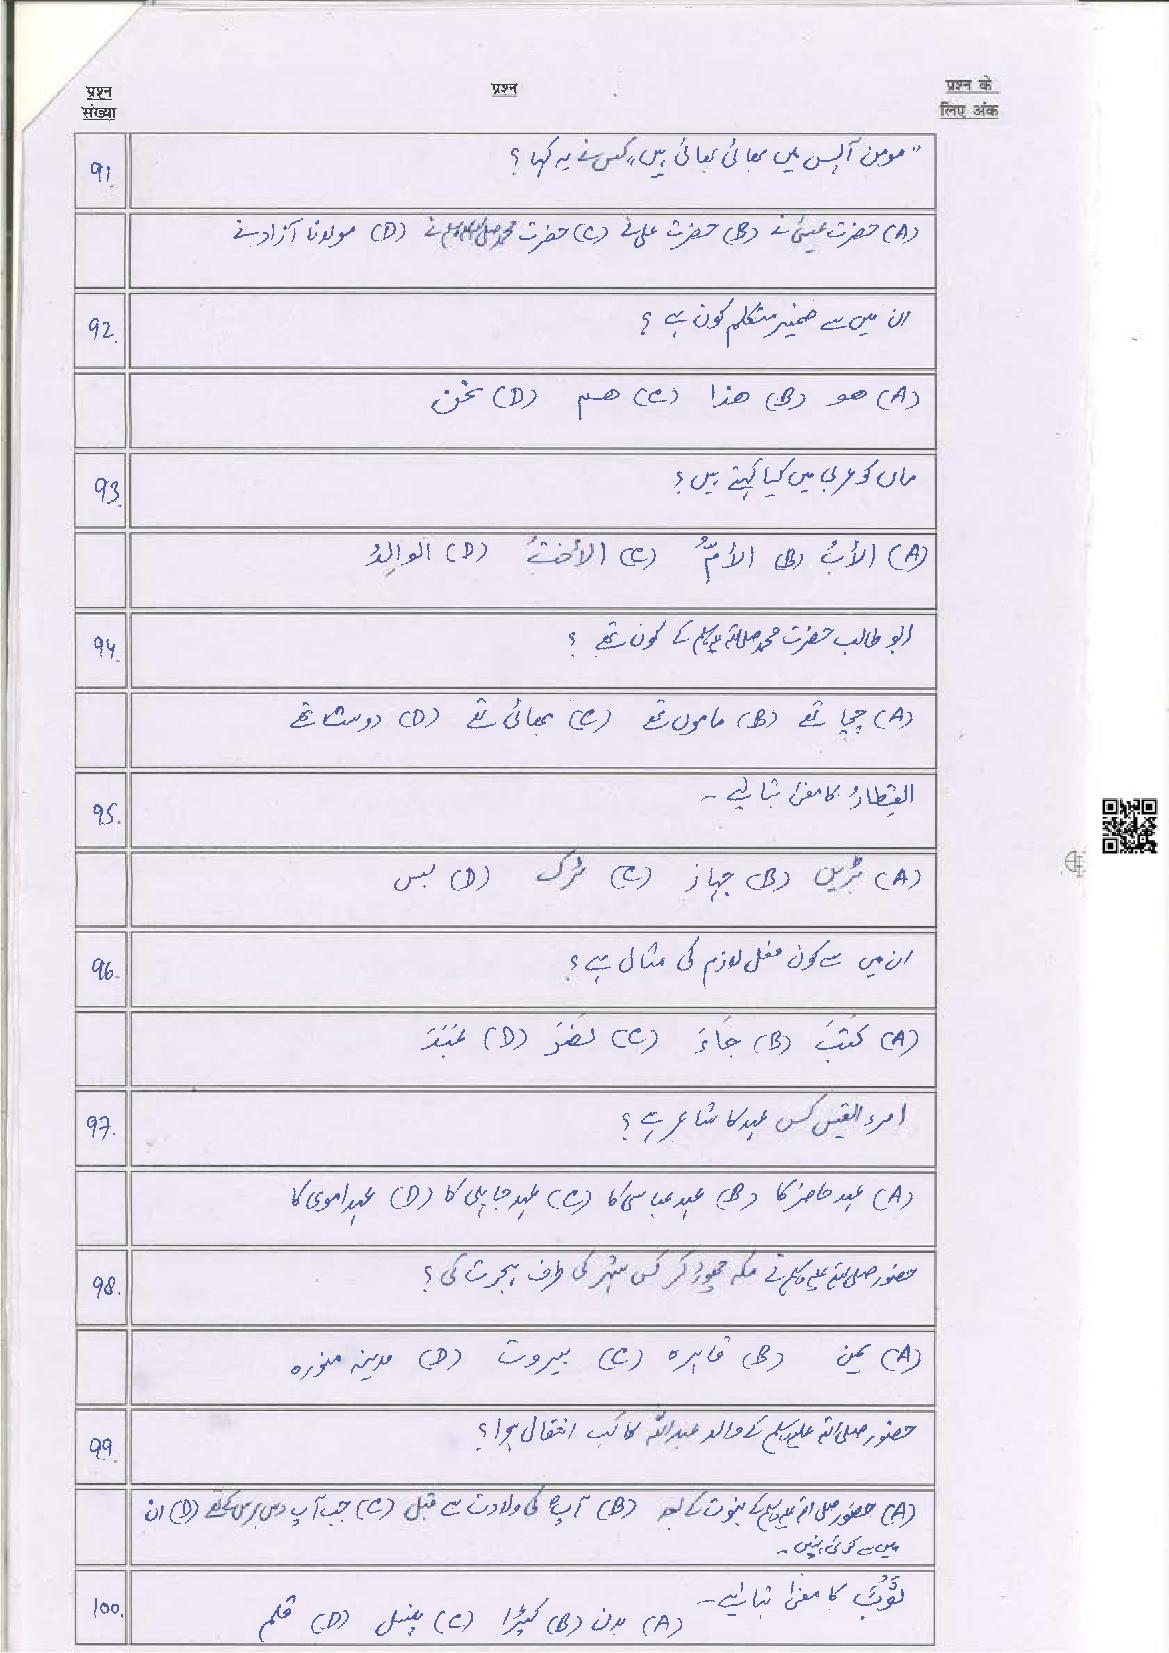 प्रश्न संख्या
प्रश्न
प्रश्न के लिए अंक
91. "مومن آپس میں بھائی بھائی ہیں"، کس نے یہ کہا ؟
(A) حضرت عیسیٰ نے (B) حضرت علی نے (C) حضرت محمد صلی اللہ علیہ وسلم نے (D) مولانا آزاد نے
92. ان میں سے ضمیر متکلم کون ہے ؟
(A) هو (B) هذا (C) هم (D) نحن
93. ماں کو عربی میں کیا کہتے ہیں ؟
(A) الأبُ (B) الأمُّ (C) الأختُ (D) الوالِدُ
94. ابو طالب حضرت محمد صلی اللہ علیہ وسلم کے کون تھے ؟
(A) چچا تھے (B) ماموں تھے (C) بھائی تھے (D) دوست تھے
95. القِطارُ کا معنیٰ بتائیے ۔
(A) ٹرین (B) جہاز (C) ٹرک (D) بس
96. ان میں سے کون فعل لازم کی مثال ہے ؟
(A) كَتَبَ (B) جَاءَ (C) نَصَرَ (D) عَبَدَ
97. امرء القیس کس عہد کا شاعر ہے ؟
(A) عہد حاضر کا (B) عہد عباسی کا (C) عہد جاہلی کا (D) عہد اموی کا
98. حضور صلی اللہ علیہ وسلم نے مکہ چھوڑ کر کس شہر کی طرف ہجرت کی ؟
(A) یمن (B) قاہرہ (C) بیروت (D) مدینہ منورہ
99. حضور صلی اللہ علیہ وسلم کے والد عبداللہ کا کب انتقال ہوا ؟
(A) حضور صلی اللہ علیہ وسلم کے نبوت کے بعد (B) آپؐ کی ولادت سے قبل (C) جب آپ دس برس کے تھے (D) ان
میں سے کوئی نہیں ۔
100. ثَوْبٌ کا معنیٰ بتائیے ۔
(A) بدن (B) کپڑا (C) پنسل (D) قلم